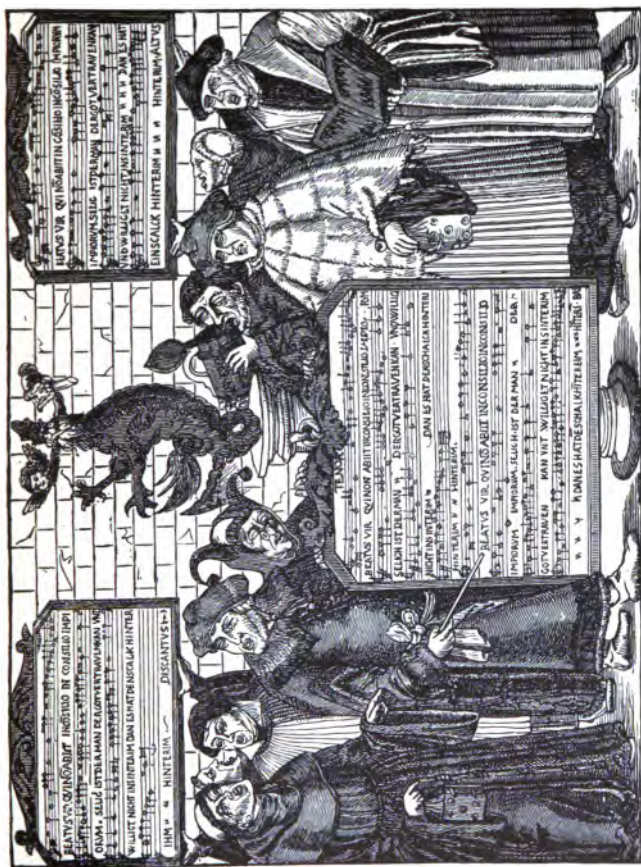 BEATVS VIR QVI NŌABIIT INCŌSILIO IN CONSILIO IMPI
ORUM · SELIG IST DER MAN DER GOT VERTRAVEN KAN VNT
WILLIGT NICHT INS INTERIM DAN ES HAT DER SCALCK HINTER
IHM HINTERIM DISCANTVS
BEATVS VIR QVI NŌABIIT IN CŌSILIO IN CŌSILIA IMPIORVM
IMPIORUM. SELIG IST DER MAN DER GOT VERTRAVEN KAN
IND WILLIGT NICHT INS INTERIM DAN ES HAT
EIN SCALCK HINTERIM HINTERIM · ALTVS
TENOR
BEATVS VIR QVI NON ABIIT IN CONSILIO IN CONSILIO
SELICH IST DER MAN DER GOT VERTRAVEN KAN · IND WILLIG
NICHT INS INTERIM DAN ES HAT DER SCHALCK HINTERI
HINTERIM HINTERIM.
BEATVS VIR QVI NŌABIIT IN CONSILIO IN CONSILIO
IMPIORUM IMPIORUM. SELICH · IST DER MAN DER
GOT VERTRAVEN KAN VNT WILLIGT NICHT INS INTERIM
DAN ES HAT DE SCHALK HĪTERIM HĪTERI · B